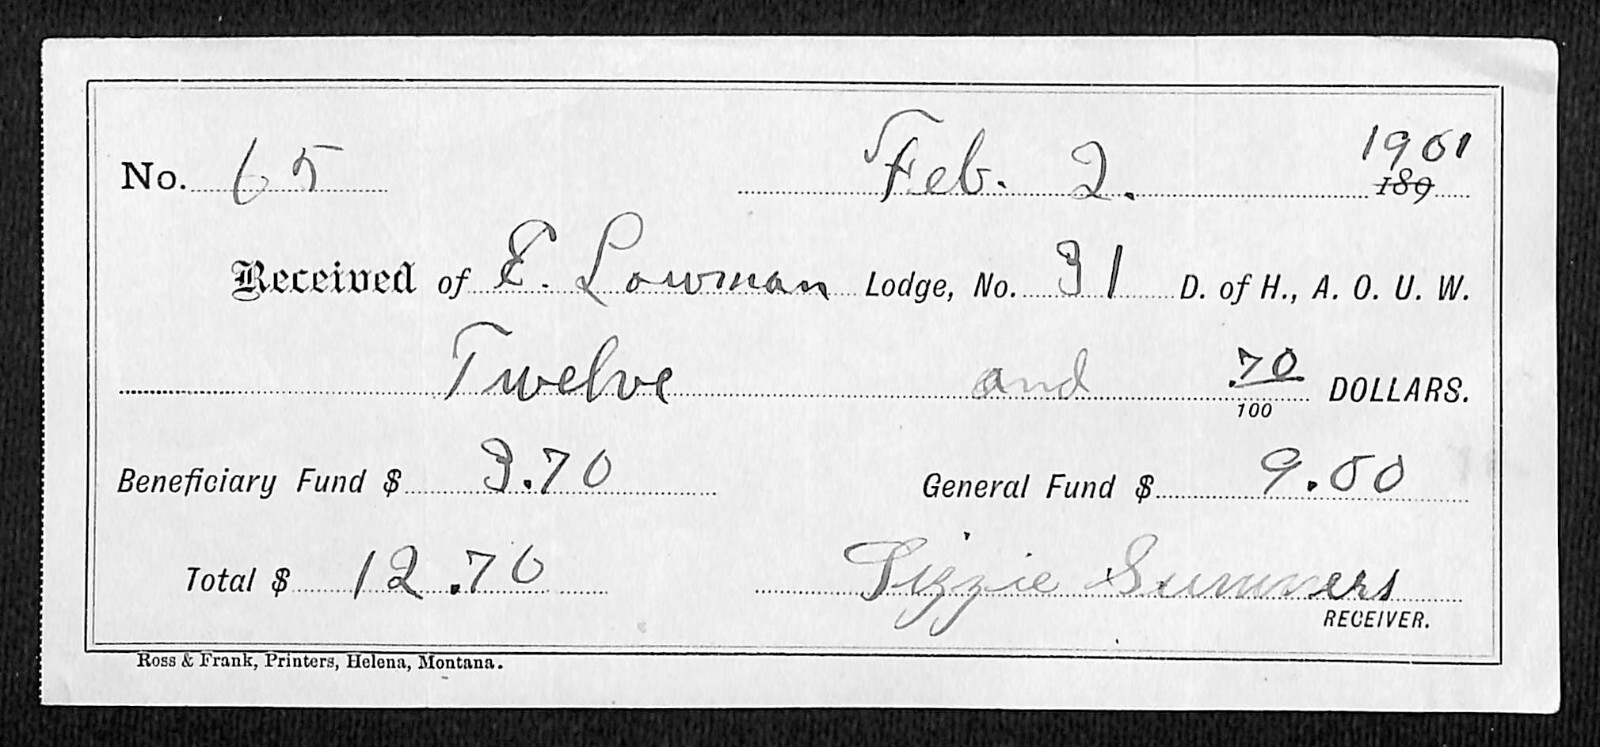 No. 65 Feb. 2. 1901 189
Received of E. Lowman Lodge, No. 31 D. of H., A. O. U. W.
Twelve and 70/100 DOLLARS.
Beneficiary Fund $ 3.70 General Fund $ 9.00
Total $ 12.70 Lizzie Summers
RECEIVER.
Ross & Frank, Printers, Helena, Montana.